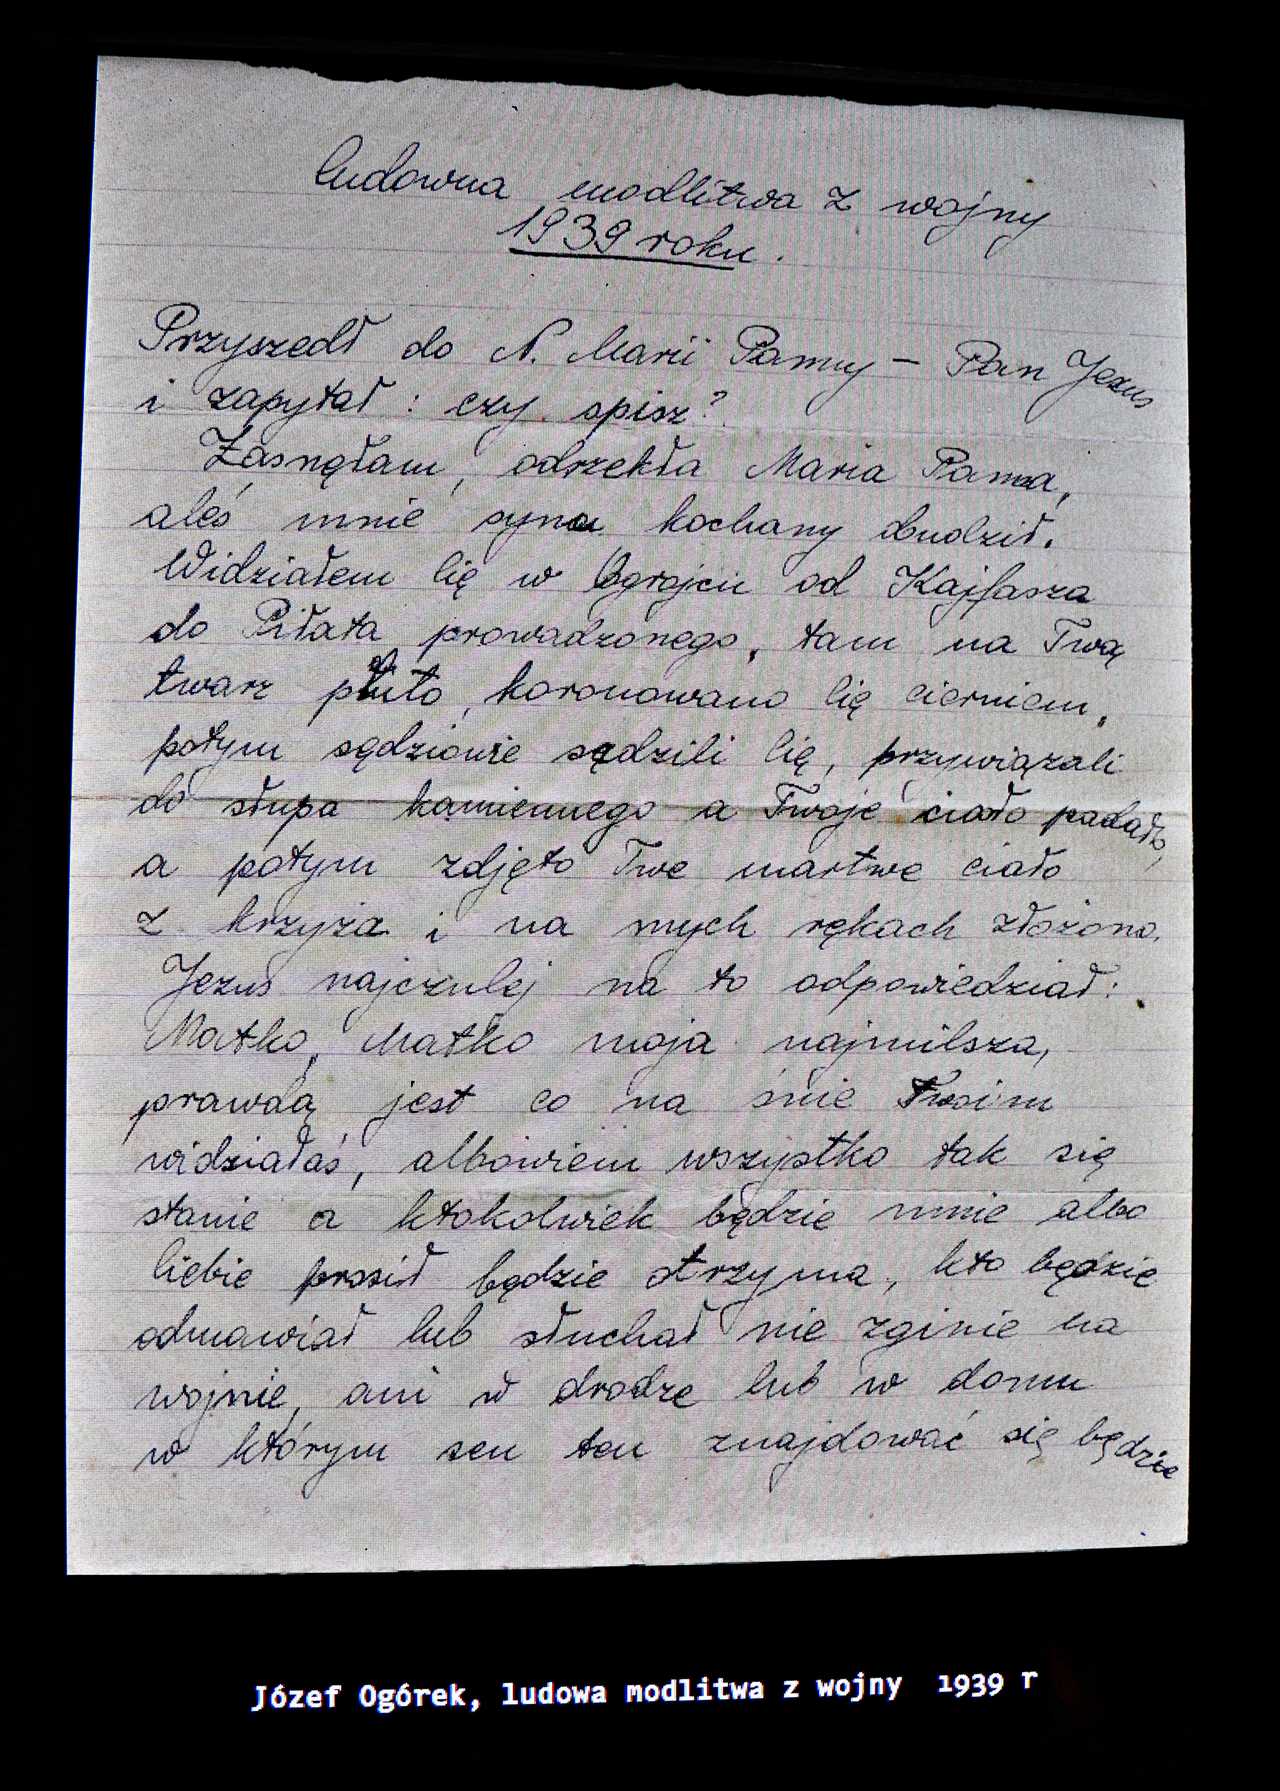 ludowna modlitwa z wojny
1939 roku.
Przyszedł do N. Marii Panny – Pan Jezus
i zapytał: czy spisz?
Zasnęłam, odrzekła Maria Panna,
aleś mnie syna kochany obudził.
Widziałem Cię w Ogrojcu od Kajfasza
do Piłata prowadzonego, tam na Twą
twarz pluto, koronowano Cię cierniem,
potym sędziowie sądzili Cię, przywiązali
do słupa kamiennego a Twoje ciało padało,
a potym zdjęto Twe martwe ciało
z krzyża i na mych rękach złożono.
Jezus najczulej na to odpowiedział:
Matko, Matko moja najmilsza,
prawdą jest co na śnie Twoim
widziałaś, albowiem wszystko tak się
stanie a ktokolwiek będzie mnie albo
Ciebie prosił będzie otrzyma, kto będzie
odmawiał lub słuchał nie zginie na
wojnie, ani w drodze lub w domu
w którym sen ten znajdować się będzie
Józef Ogórek, ludowa modlitwa z wojny 1939 r